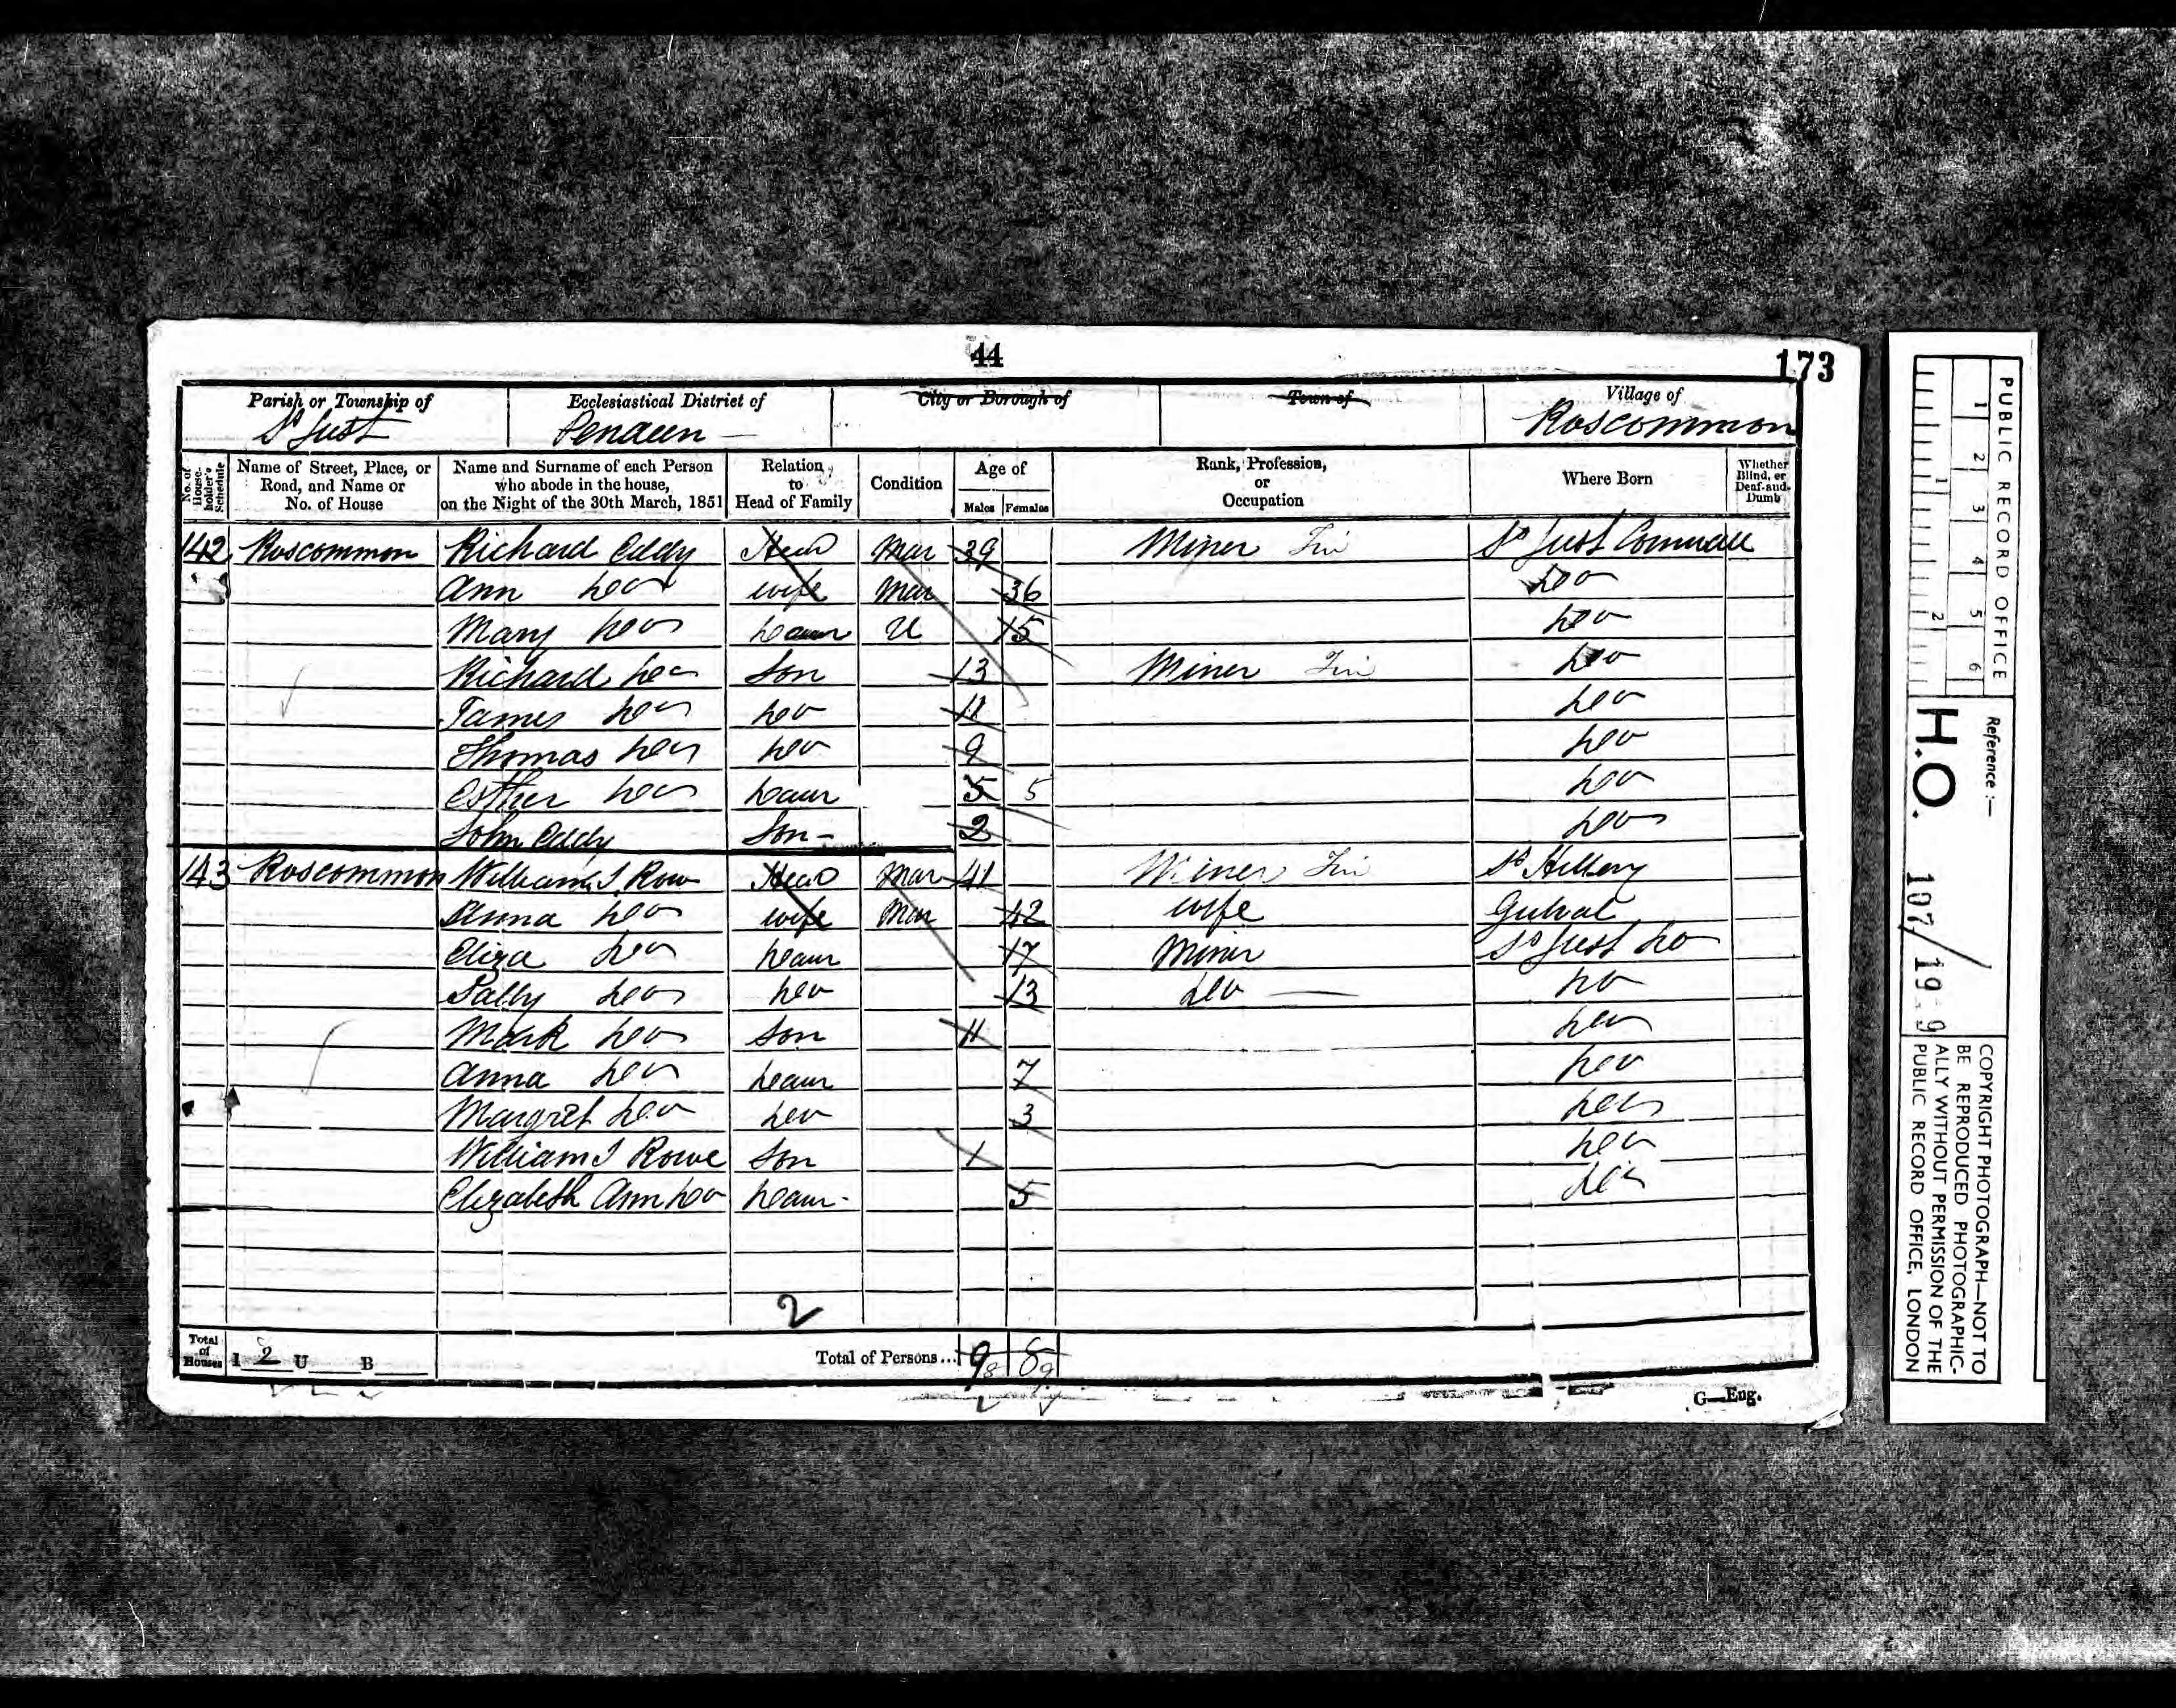 44
173
Parish or Township of
St Just
Ecclesiastical District of
Pendeen
City or Borough of
Town of
Village of
Roscommon
No. of House-holder's Schedule
Name of Street, Place, or Road, and Name or No. of House
Name and Surname of each Person who abode in the house, on the Night of the 30th March, 1851
Relation to Head of Family
Condition
Age of
Males Females
Rank, Profession, or Occupation
Where Born
Whether Blind, or Deaf-and-Dumb
142 Roscommon Richard Eddy Head Mar 39 Miner Tin St Just Cornwall
Ann Do wife Mar 36 Do
Mary Do Daur U 15 Do
Richard Do Son 13 Miner Tin Do
James Do Do 11 Do
Thomas Do Do 9 Do
Esther Do Daur 5 5 Do
John Eddy Son 2 Do
143 Roscommon William J Row Head Mar 41 Miner Tin St Hillery
Anna Do wife Mar 42 wife Gulval
Eliza Do Daur 17 Miner St Just Do
Sally Do Do 13 Do Do
Mark Do Son 11 Do
Anna Do Daur 7 Do
Margret Do Do 3 Do
William J Rowe Son 1 Do
Elizabeth Ann Do Daur 5 Do
2
Total of Houses I 2 U B
Total of Persons... 9 8 8 9
G—Eng.
PUBLIC RECORD OFFICE
1 2 3 4 5 6
1 2
Reference :—
H.O. 107/19 9
COPYRIGHT PHOTOGRAPH—NOT TO
BE REPRODUCED PHOTOGRAPHIC-
ALLY WITHOUT PERMISSION OF THE
PUBLIC RECORD OFFICE, LONDON